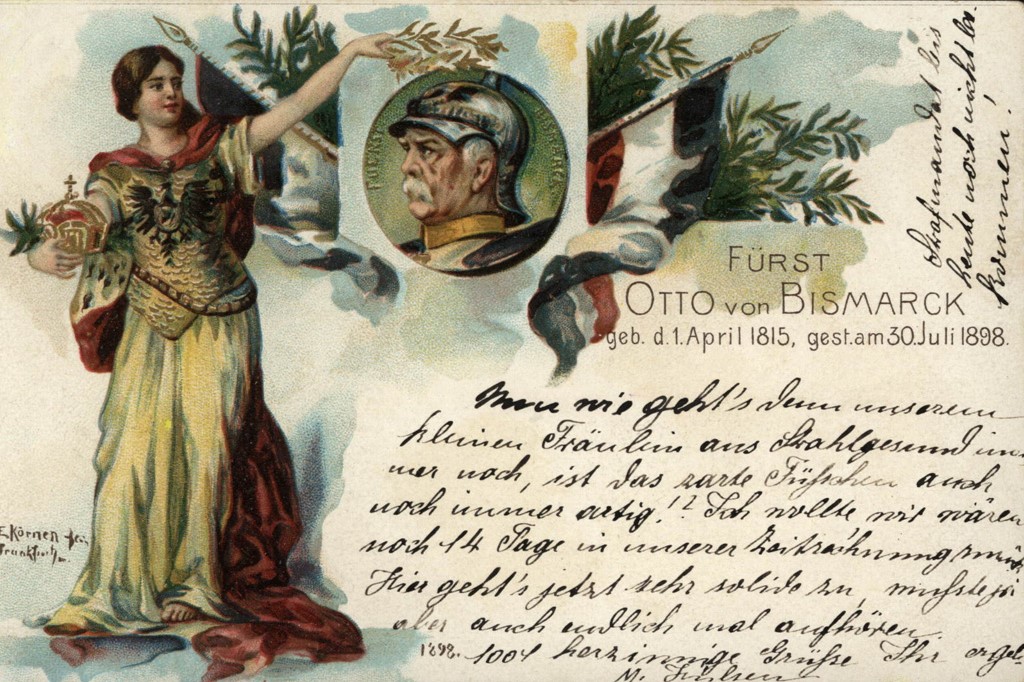 FUERST BISMARCK
FÜRST
OTTO von BISMARCK
geb. d. 1. April 1815, gest. am 30. Juli 1898.
wie geht's denn unserem
kleinen Fräulein aus im-
mer noch, ist das zarte Füßchen auch
noch immer artig!? Ich wollte wir wären
noch 14 Tage in unserer Zeitrechnung
Hier geht's jetzt sehr solide zu, mußte ja
aber auch endlich mal aufhören.
1898. 1004 herzinnige Grüße Ihr ergeb.
heute noch nicht be-
kommen!
E Körner
Frankfurt